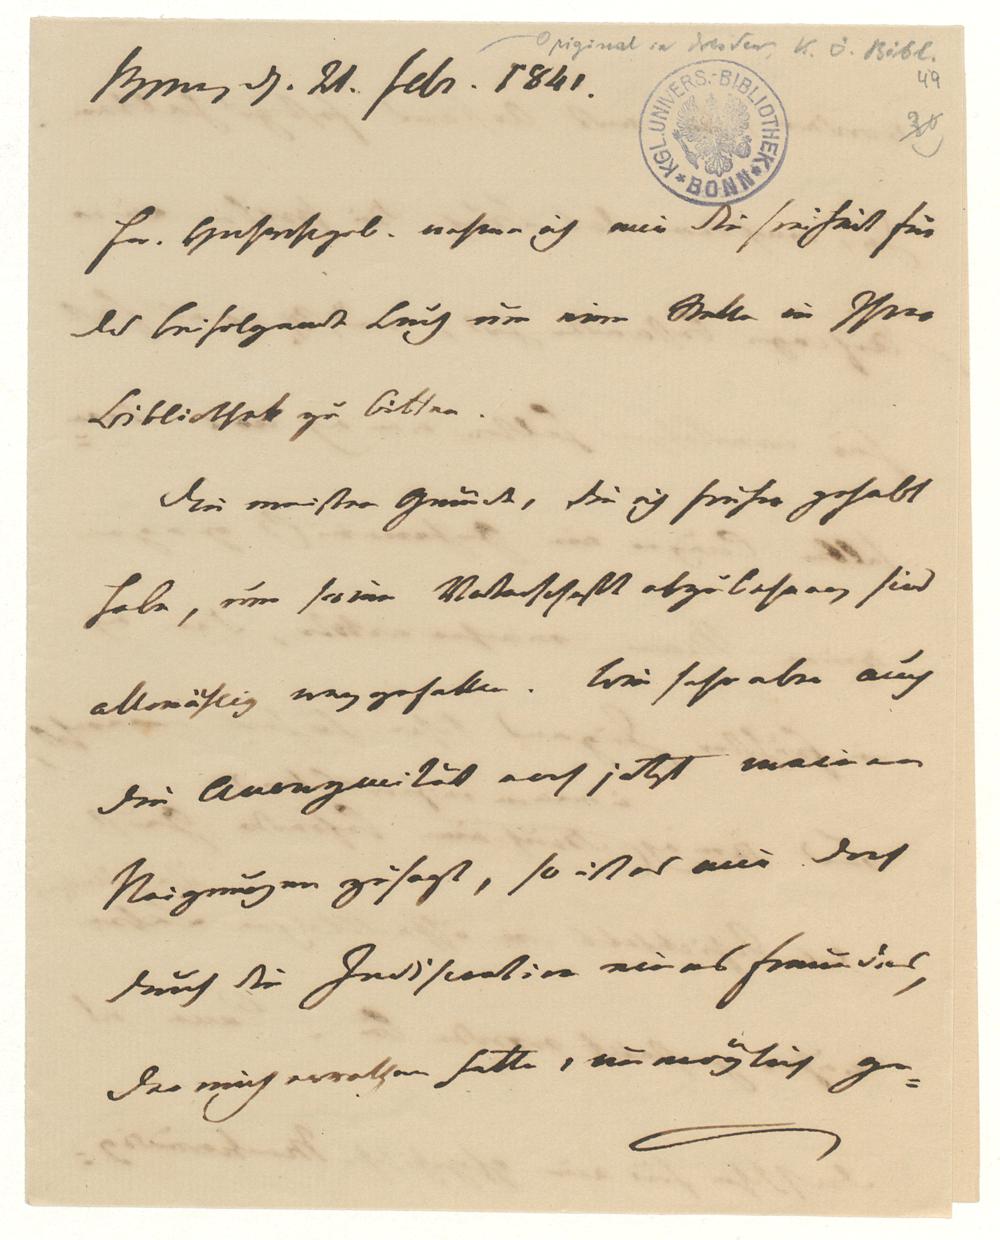 Original in Dresden, K. Ö. Bibl.
49
Bonn, d. 21. Febr. 1841.
KGL. UNIVERS.-BIBLIOTHEK
* BONN *
Ew. Hochwohlgeb. nehme ich mir die Freiheit für
das beifolgende Buch um eine Stelle in Ihrer
Bibliothek zu bitten.
Die meisten Gründe, die ich früher gehabt
habe, um seine Vaterschaft abzulehnen, sind
allmählig weggefallen. Wie sehr aber auch
die Anonymität noch jetzt meinen
Neigungen zusagt, so ist es mir doch
durch die Indiscretion eines Freundes,
der mich errathen hatte, unmöglich ge=